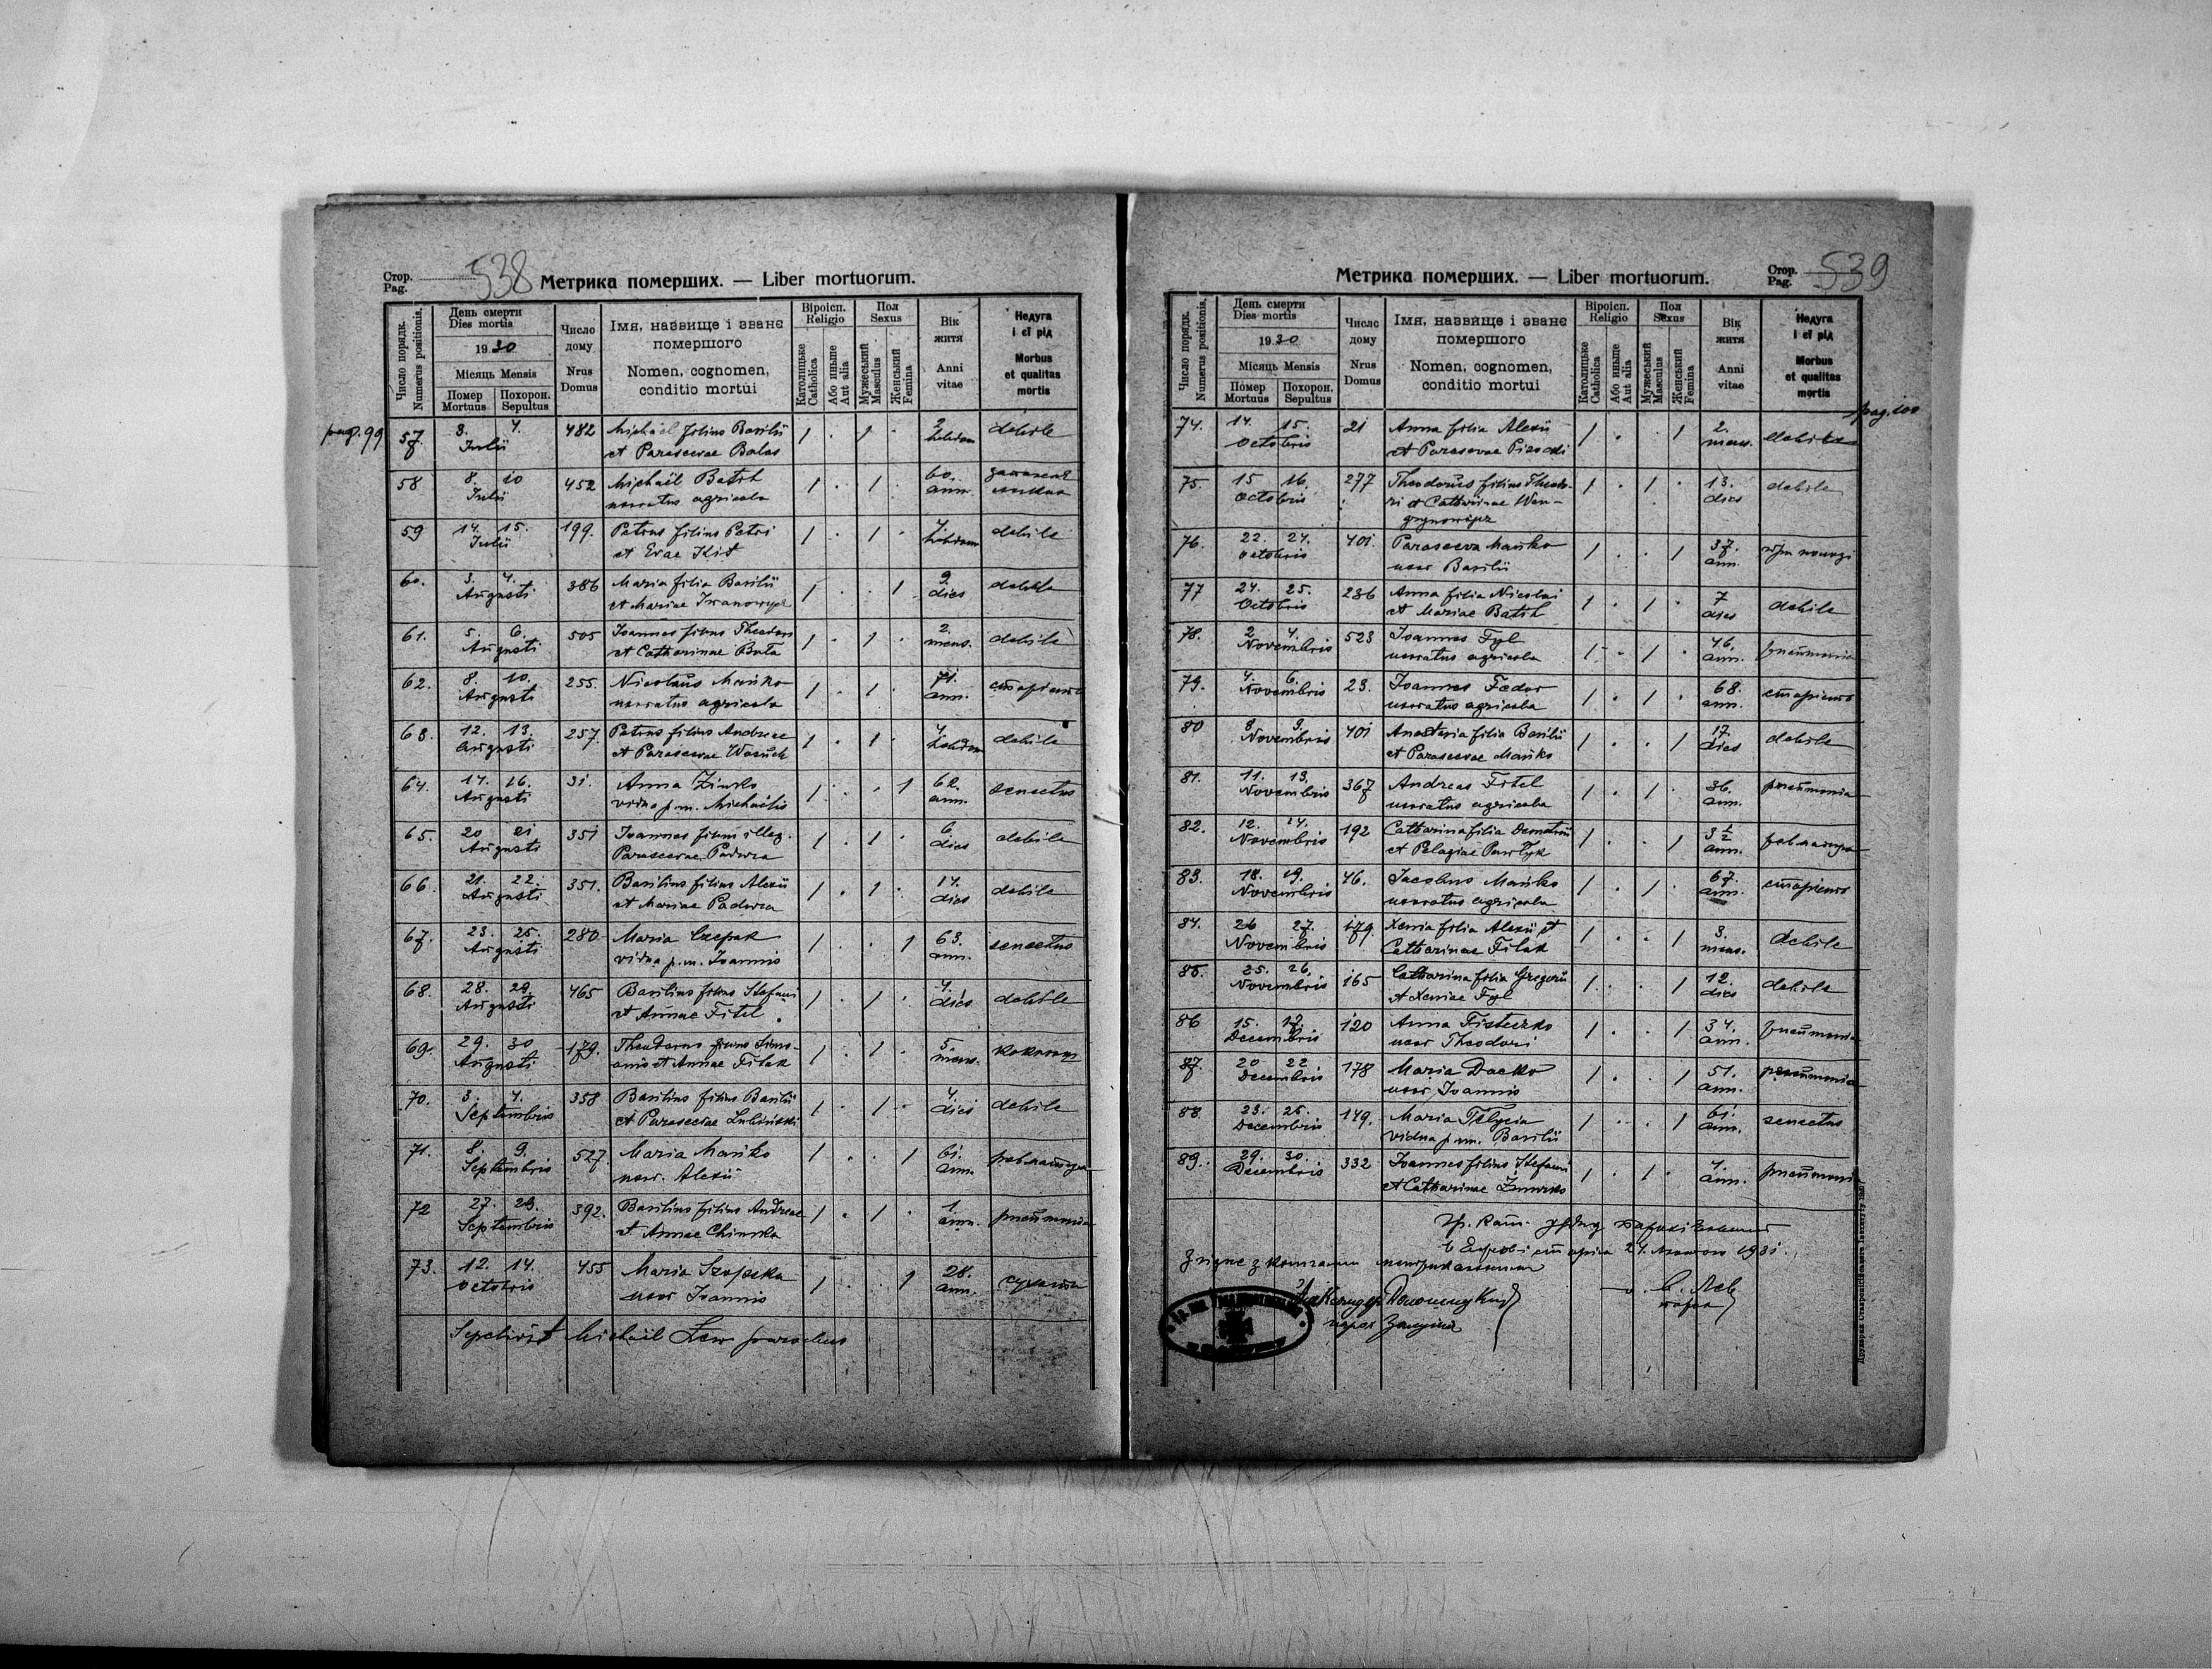 Стор.
Pag.
538
Метрика померших. — Liber mortuorum.
Число порядк.
Numerus positionis.
День смерти
Dies mortis
1930
Місяць Mensis
Помер
Mortuus
Похорон.
Sepultus
Число
дому
Nrus
Domus
Імя,назвище і званє
помершого
Nomen, cognomen,
conditio mortui
Віроісп.
Religio
Католицьке
Catholica
Або иньше
Aut alia
Пол
Sexus
Мужеський
Masculus
Женський
Femina
Вік
житя
Anni
vitae
Недуга
і єї рід
Morbus
et qualitas
mortis
pag. 99
57. 3. 4. Julii 482 Michael filius Basilii 1 . 1 . 2 debile
et Parascevae Balas hebdom
58 8. 10 Julii 452 Michaël Batih 1 . 1 . 60. ann.
uxoratus agricola
59 14. 15. Julii 199. Petrus filius Petri 1 . 1 . hebdom debile
et Evae Kit
60. 3. 4. Augusti 386 Maria filia Basilii 1 . . 1 9. dies debile
et Mariae Iwanowycz
61. 5. 6. Augusti 505 Ioannes filius Theodori 1 . 1 . 2. mens. debile
et Catharinae Buta
62. 8. 10. Augusti 255. Nicolaus Mańko 1 . 1 . 71. ann.
uxoratus agricola
63. 12. 13. Augusti 257. Petrus filius Andreae 1 . 1 . 4. hebdom debile
et Parascevae
64. 14. 16. Augusti 31. Anna 1 . . 1 62. ann. senectus
vidua p.m. Michaelis
65. 20 21 Augusti 351 Ioannes filius illeg. 1 . 1 . 6. dies debile
Parascevae Padura
66. 21. 22. Augusti 351. Basilius filius Alexii 1 . 1 . 14. dies debile
et Mariae Padura
67. 23. 25. Augusti 280 Maria Czepak 1 . . 1 63. ann. senectus
vidua p.m. Ioannis
68. 28. 29. Augusti 465 Basilius filius Stefani 1 . 1 . 4. dies debile
et Annae Fitel
69. 29. 30 Augusti 179. Theodorus filius 1 . 1 . 5. mens.
et Annae Filak
70. 3. 4. Septembris 358 Basilius filius Basilii 1 . 1 . 4. dies debile
et Parascevae Lubiński
71. 8. 9. Septembris 527. Maria Mańko 1 . . 1 61. ann.
uxor. Alexii
72 27. 29. Septembris 392. Basilius filius Andreae 1 . 1 . 1. ann. pneumonia
et Annae
73. 12. 14. Octobris 455 Maria Szopska 1 . . 1 28. ann. сухота
uxor Ioannis
Sepelivit Michaël Lew parochus
Метрика померших. — Liber mortuorum.
Стор.
Pag.
539
Число порядк.
Numerus positionis.
День смерти
Dies mortis
1930
Місяць Mensis
Помер
Mortuus
Похорон.
Sepultus
Число
дому
Nrus
Domus
Імя, назвище і званє
помершого
Nomen, cognomen,
conditio mortui
Віроісп.
Religio
Католицьке
Catholica
Або иньше
Aut alia
Пол
Sexus
Мужеський
Masculus
Женський
Femina
Вік
житя
Anni
vitae
Недуга
і єї рід
Morbus
et qualitas
mortis
pag. 100
74. 14. 15. Octobris 21 Anna filia Alexii 1 . . 1 2. mens. debile
et Parascevae
75. 15 16. Octobris 277 Theodorus filius Theodo- 1 . 1 . 13. dies debile
ri et Catharinae Wen-
grynowicz
76. 22. 24. Octobris 401. Parasceva Mańko 1 . . 1 37. ann.
uxor Basilii
77 24. 25. Octobris 286 Anna filia Nicolai 1 . 1 . 7 dies debile
et Mariae Batih
78. 2. 4. Novembris 523 Ioannes Fyl 1 . 1 . 46. ann. pneumonia
uxoratus agricola
79. 4. 6. Novembris 23. Ioannes Fedor 1 . 1 . 68. ann.
uxoratus agricola
80 8 9. Novembris 401 Anastasia filia Basilii 1 . . 1 17. dies debile
et Parascevae Mańko
81. 11. 13. Novembris 367 Andreas Fitel 1 . 1 . 36. ann. pneumonia
uxoratus agricola
82. 12. 14. Novembris 192 Catharina filia Demetrii 1 . . 1 3 1/2 ann.
et Pelagiae Pawlyk
83. 18. 19. Novembris 46. Iacobus Mańko 1 . 1 . 67. ann.
uxoratus agricola
84. 26 27. Novembris 179. Xenia filia Alexii et 1 . . 1 3. mens. debile
Catharinae Filak
85. 25. 26. Novembris 165 Catharina filia Gregorii 1 . . 1 12. dies debile
et Xeniae Fyl
86 15. 17. Decembris 120 Anna Fisteczko 1 . . 1 34. ann. pneumonia
uxor Theodori
87. 20 22 Decembris 178 Maria Dacko 1 . . 1 51. ann. pneumonia
uxor Ioannis
88. 23. 25. Decembris 149. Maria Telycia 1 . . 1 61. ann. senectus
vidua p.m. Basilii
89. 29. 30. Decembris 332 Ioannes filius Stefani 1 . 1 . ann. pneumonia
et Catharinae Żmurko
Гр. кат. Уряд парохіяльний
24. 1931.
Згідне з